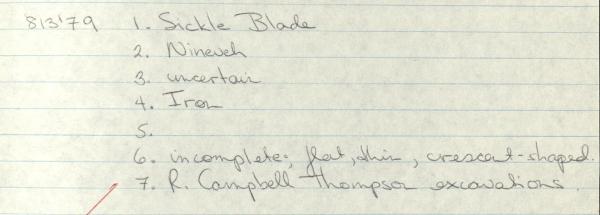 813'79 1. Sickle Blade
2. Nineveh
3. uncertain
4. Iron
5.
6. incomplete; flat, thin, crescent-shaped.
7. R. Campbell Thompson excavations.